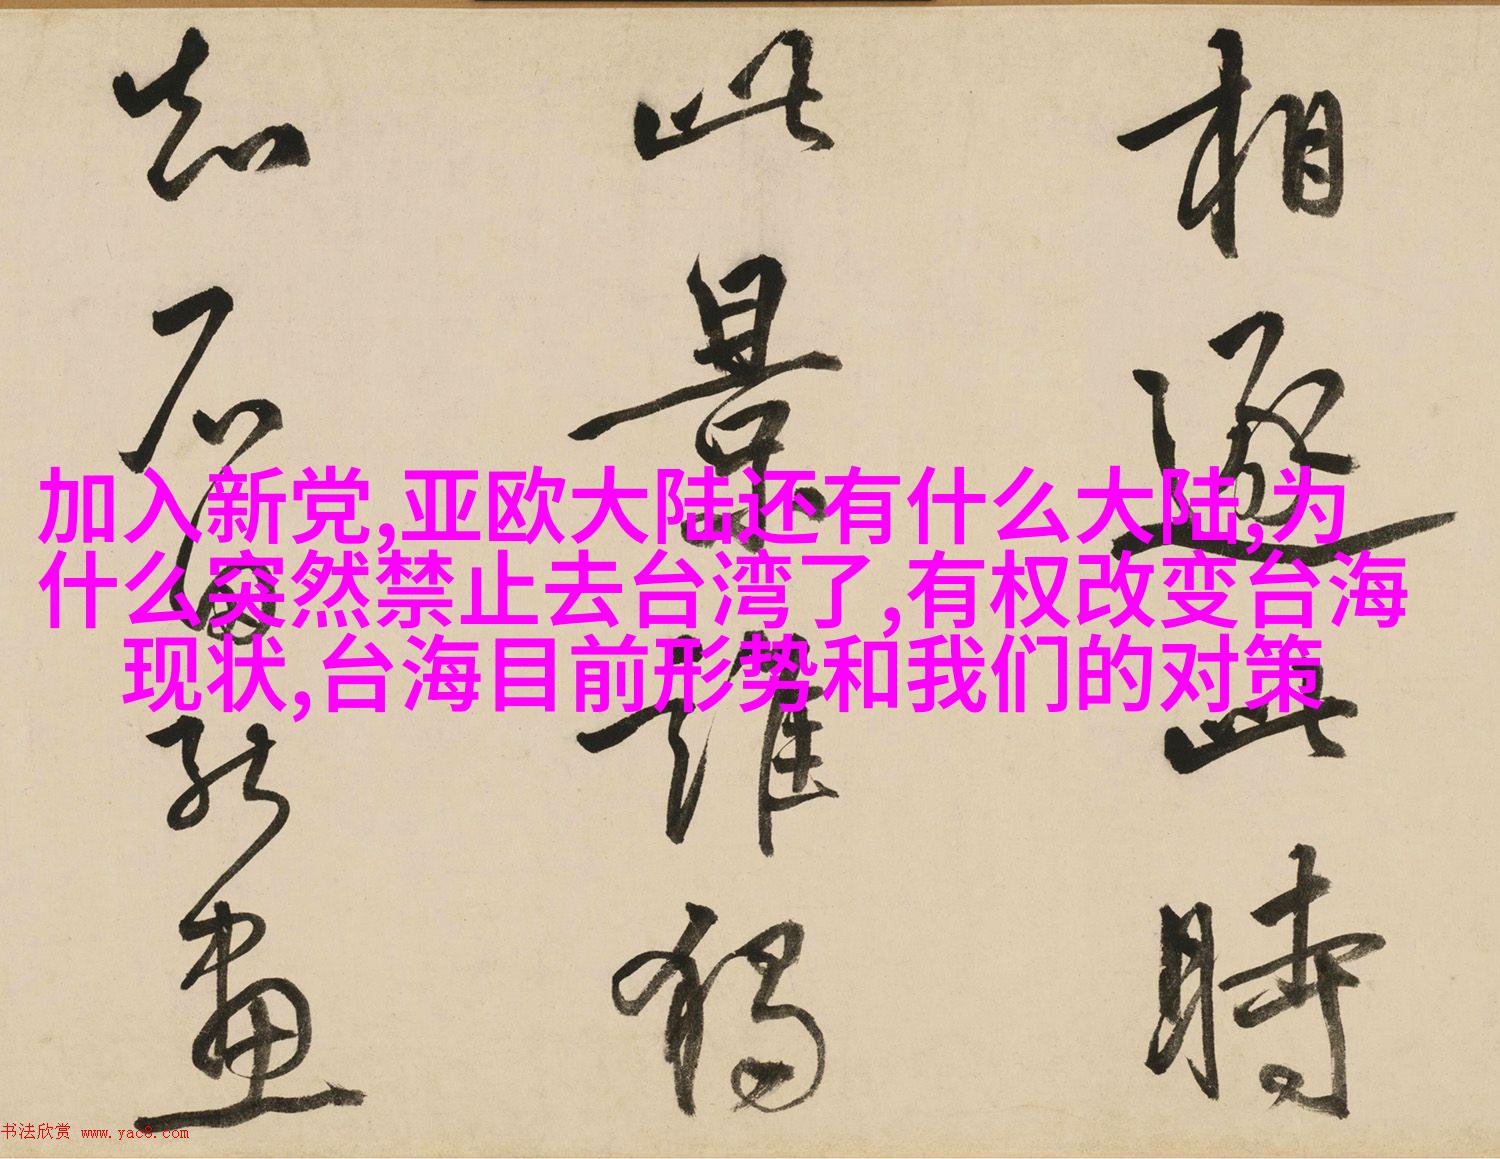 相逐此時
此景誰獨
知石田能畫
加入新党,亚欧大陆还有什么大陆,为
什么突然禁止去台湾了,有权改变台海
现状,台海目前形势和我们的对策
书法欣赏 www.yac8.com